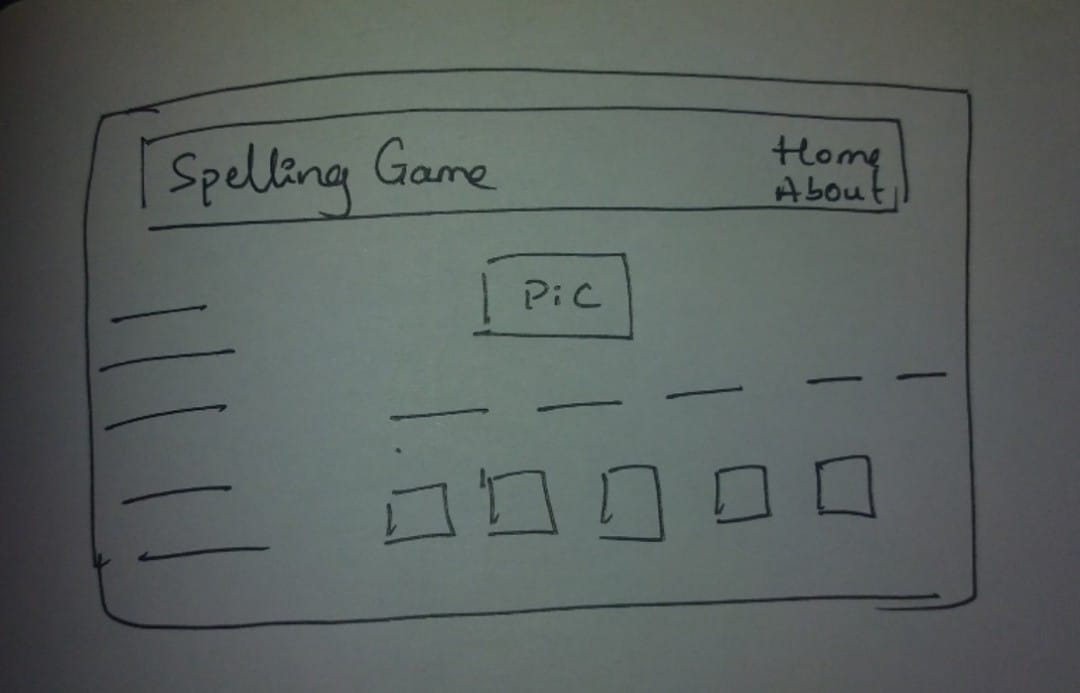 Spelling Game
Home
About
Pic